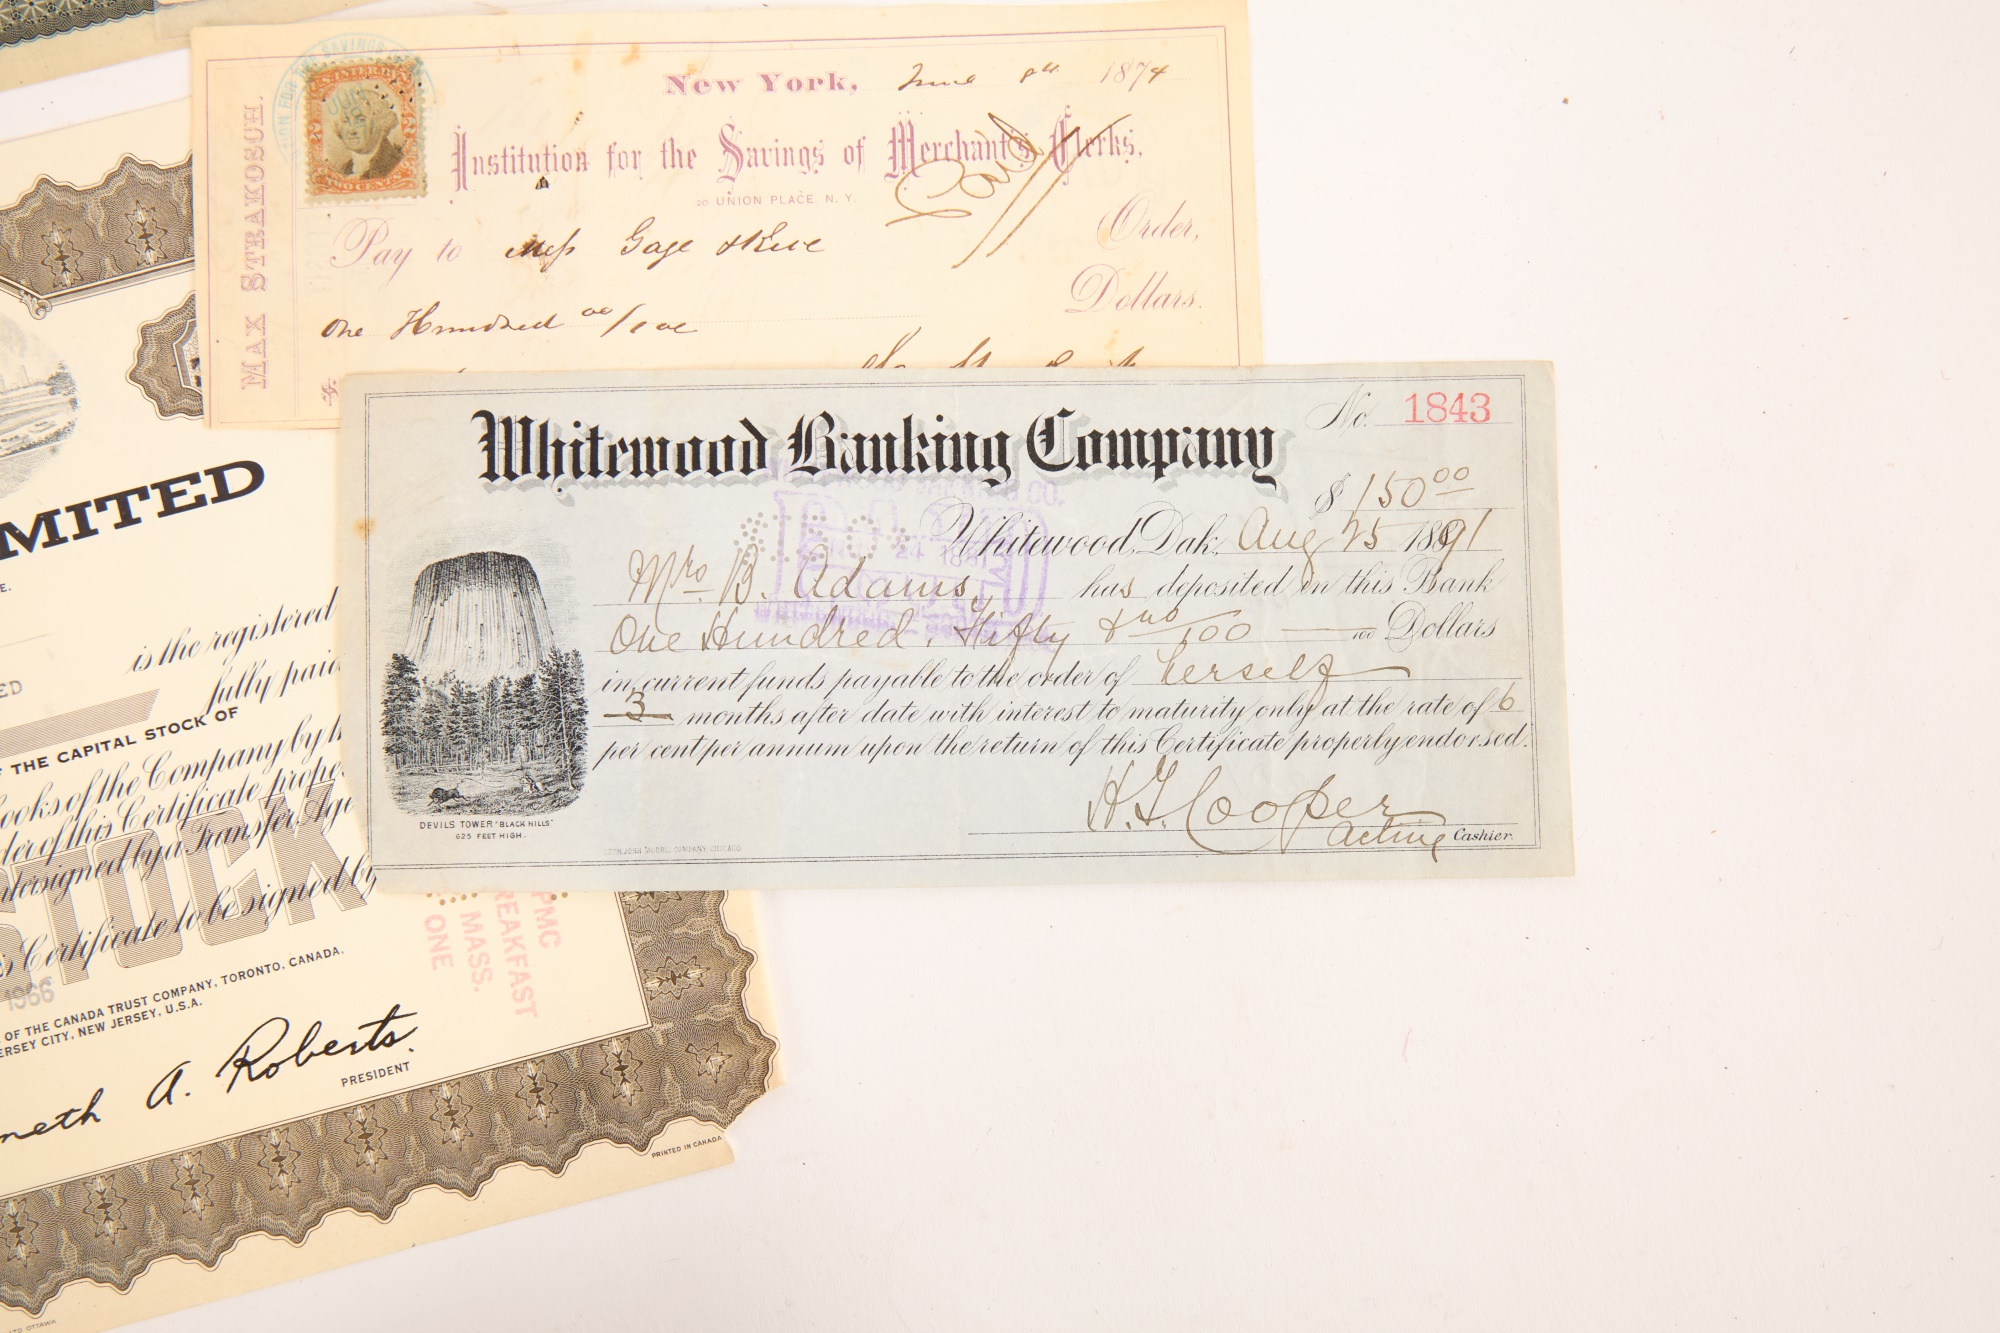 New York, June 8th 1874
Institution for the Savings of Merchant's Clerks.
20 UNION PLACE, N. Y.
Paid
Pay to Mess Gage & Order,
One Hundred 00/100 Dollars.
$
MAX STRAKOSCH.
U.S. INTER. REV.
TWO CENTS
Whitewood Banking Company
No. 1843
$ 150 00
Whitewood, Dak. Aug 25 1891
Mrs B. Adams, has deposited in this Bank
One Hundred, Fifty & no/100 Dollars
in current funds payable to the order of herself
3 months after date with interest to maturity only at the rate of 6
per cent per annum upon the return of this Certificate properly endorsed.
H. F. Cooper
Acting Cashier.
DEVILS TOWER "BLACK HILLS"
625 FEET HIGH.
PAID
MITED
is the registered
fully paid
ED
THE CAPITAL STOCK OF
ooks of the Company by
der of this Certificate prope
ntersigned by a Transfer Age
s Certificate to be signed by
STOCK
1966
OF THE CANADA TRUST COMPANY, TORONTO, CANADA,
ERSEY CITY, NEW JERSEY, U.S.A.
neth A. Roberts.
PRESIDENT
PMC
REAKFAST
MASS.
ONE
PRINTED IN CANADA
TD OTTAWA